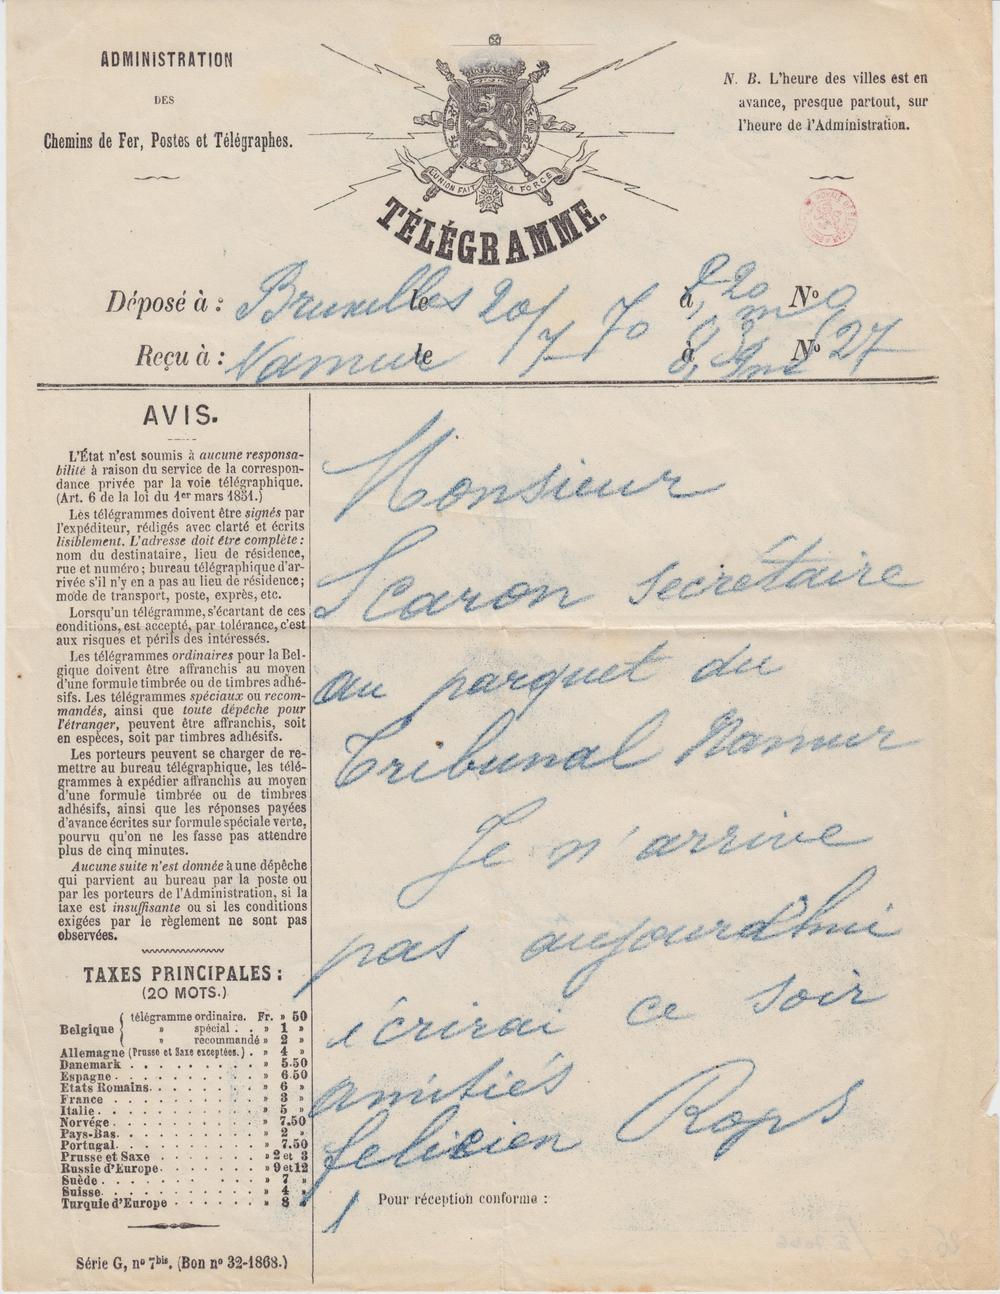 ADMINISTRATION
DES
Chemins de Fer, Postes et Télégraphes.
N. B. L'heure des villes est en
avance, presque partout, sur
l'heure de l'Administration.
L'UNION FAIT LA FORCE
TÉLÉGRAMME.
Déposé à : Bruxelles le 20/7 70 à Nº
Reçu à : Namur le à Nº 27
AVIS.
L'État n'est soumis à aucune responsa-
bilité à raison du service de la correspon-
dance privée par la voie télégraphique.
(Art. 6 de la loi du 1er mars 1851.)
Les télégrammes doivent être signés par
l'expéditeur, rédigés avec clarté et écrits
lisiblement. L'adresse doit être complète :
nom du destinataire, lieu de résidence,
rue et numéro ; bureau télégraphique d'ar-
rivée s'il n'y en a pas au lieu de résidence ;
mode de transport, poste, exprès, etc.
Lorsqu'un télégramme, s'écartant de ces
conditions, est accepté, par tolérance, c'est
aux risques et périls des intéressés.
Les télégrammes ordinaires pour la Bel-
gique doivent être affranchis au moyen
d'une formule timbrée ou de timbres adhé-
sifs. Les télégrammes spéciaux ou recom-
mandés, ainsi que toute dépêche pour
l'étranger, peuvent être affranchis, soit
en espèces, soit par timbres adhésifs.
Les porteurs peuvent se charger de re-
mettre au bureau télégraphique, les télé-
grammes à expédier affranchis au moyen
d'une formule timbrée ou de timbres
adhésifs, ainsi que les réponses payées
d'avance écrites sur formule spéciale verte,
pourvu qu'on ne les fasse pas attendre
plus de cinq minutes.
Aucune suite n'est donnée à une dépêche
qui parvient au bureau par la poste ou
par les porteurs de l'Administration, si la
taxe est insuffisante ou si les conditions
exigées par le règlement ne sont pas
observées.
TAXES PRINCIPALES :
(20 MOTS.)
Belgique { télégramme ordinaire. Fr. » 50
» spécial . . » 1 »
» recommandé » 2 »
Allemagne (Prusse et Saxe exceptées.) . » 4 »
Danemark . . . . . . . . . » 5.50
Espagne . . . . . . . . . » 6.50
Etats Romains. . . . . . . . » 6 »
France . . . . . . . . . . » 3 »
Italie . . . . . . . . . . » 5 »
Norvége . . . . . . . . . » 7.50
Pays-Bas. . . . . . . . . » 2 »
Portugal . . . . . . . . . » 7.50
Prusse et Saxe . . . . . . . » 2 et 3
Russie d'Europe . . . . . . . » 9 et 12
Suède . . . . . . . . . . » 7 »
Suisse . . . . . . . . . . » 4 »
Turquie d'Europe . . . . . . » 8 »
Série G, nº 7bis. (Bon nº 32-1868.)
Monsieur
Scaron secrétaire
au parquet du
Tribunal Namur
Je n'arrive
pas aujourd'hui
écrirai ce soir
amitiés
felicien Rops
Pour réception conforme :